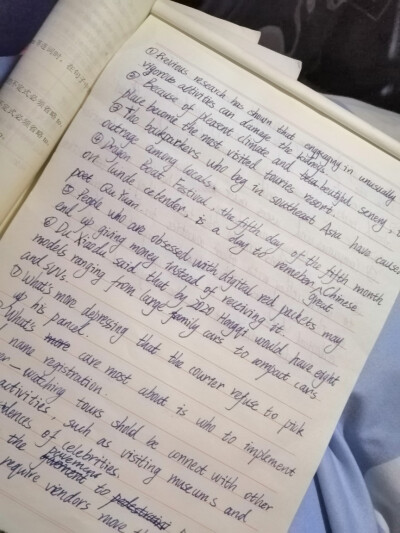 ① Previous research has shown that engaging in unusually
vigorous activities can damage the kidneys.
② Because of pleasent climate and beautiful senery,
place become the most visited tourles resort.
③ The backparkers who beg in southeast Asia have cause
outrage among locals.
④ Drgon Boat Festival, the fifth day of the fifth month
on lunde celendar, is a day to remeber Chinese great
poet Qu Yuan.
⑤ People who are obsessed with digital red packets may
end up giving money instead of receiving it.
⑥ Du Xiaodu said that by 2020 Hongqi would have eight
models ranging from large family cars to compact cars
and SUVs.
⑦ What's more depressing that the courier refuse to pick
up his parcel.
What's care most about is who to implement
name registration.
-watching tours shold be connect with other
activities, such as visiting museums and
idences of celebrities.
the pavement to
require viendors move